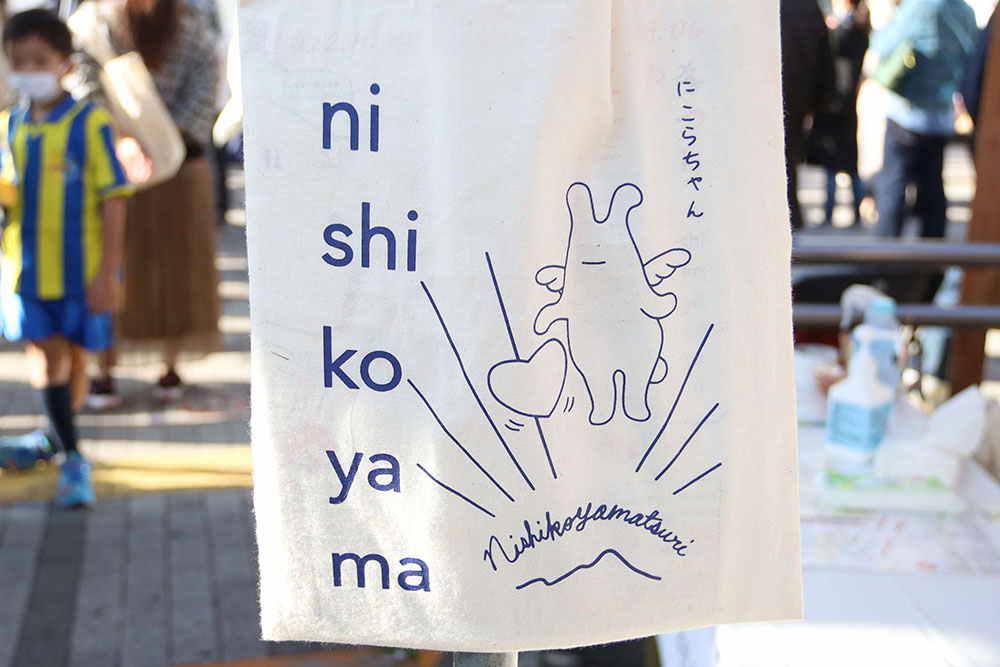 ni
shi
ko
ya
ma
にこらちゃん
Nishikoyamatsuri